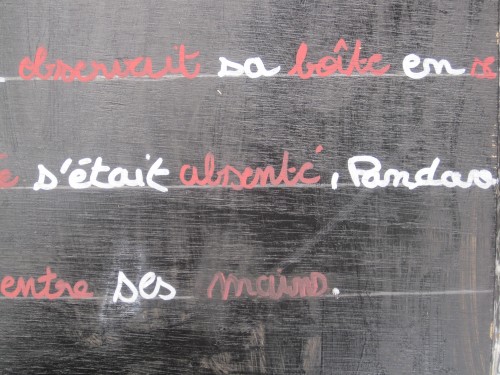 observait sa boîte en s
e s'était absenté, Pandav
entre ses mains.